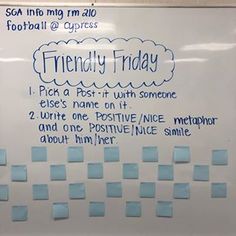 SGA info mtg rm 210
football @ cypress
Friendly Friday
1. Pick a Post-it with someone
else's name on it.
2. Write one POSITIVE/NICE metaphor
and one POSITIVE/NICE simile
about him/her.